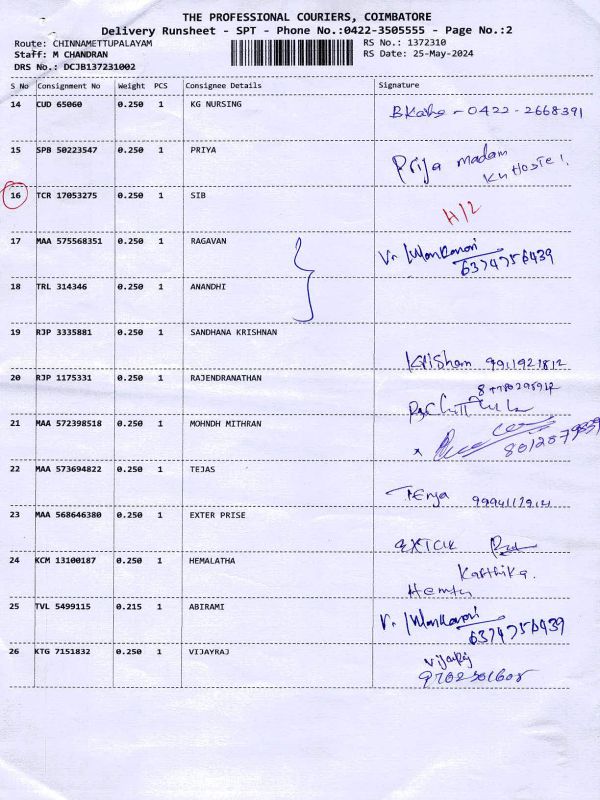 THE PROFESSIONAL COURIERS, COIMBATORE
Delivery Runsheet - SPT - Phone No.:0422-3505555 - Page No.:2
Route: CHINNAMETTUPALAYAM RS No.: 1372310
Staff: M CHANDRAN RS Date: 25-May-2024
DRS No.: DCJB137231002
S No Consignment No Weight PCS Consignee Details Signature
14 CUD 65060 0.250 1 KG NURSING
0422-2668391
15 SPB 50223547 0.250 1 PRIYA
Prija madam
Hostel
16 TCR 17053275 0.250 1 SIB
H/2
17 MAA 575568351 0.250 1 RAGAVAN
6374756439
18 TRL 314346 0.250 1 ANANDHI
19 RJP 3335881 0.250 1 SANDHANA KRISHNAN
20 RJP 1175331 0.250 1 RAJENDRANATHAN
21 MAA 572398518 0.250 1 MOHNDH MITHRAN
22 MAA 573694822 0.250 1 TEJAS
23 MAA 568646380 0.250 1 EXTER PRISE
24 KCM 13100187 0.250 1 HEMALATHA
Karthika.
25 TVL 5499115 0.215 1 ABIRAMI
6374756439
26 KTG 7151832 0.250 1 VIJAYRAJ